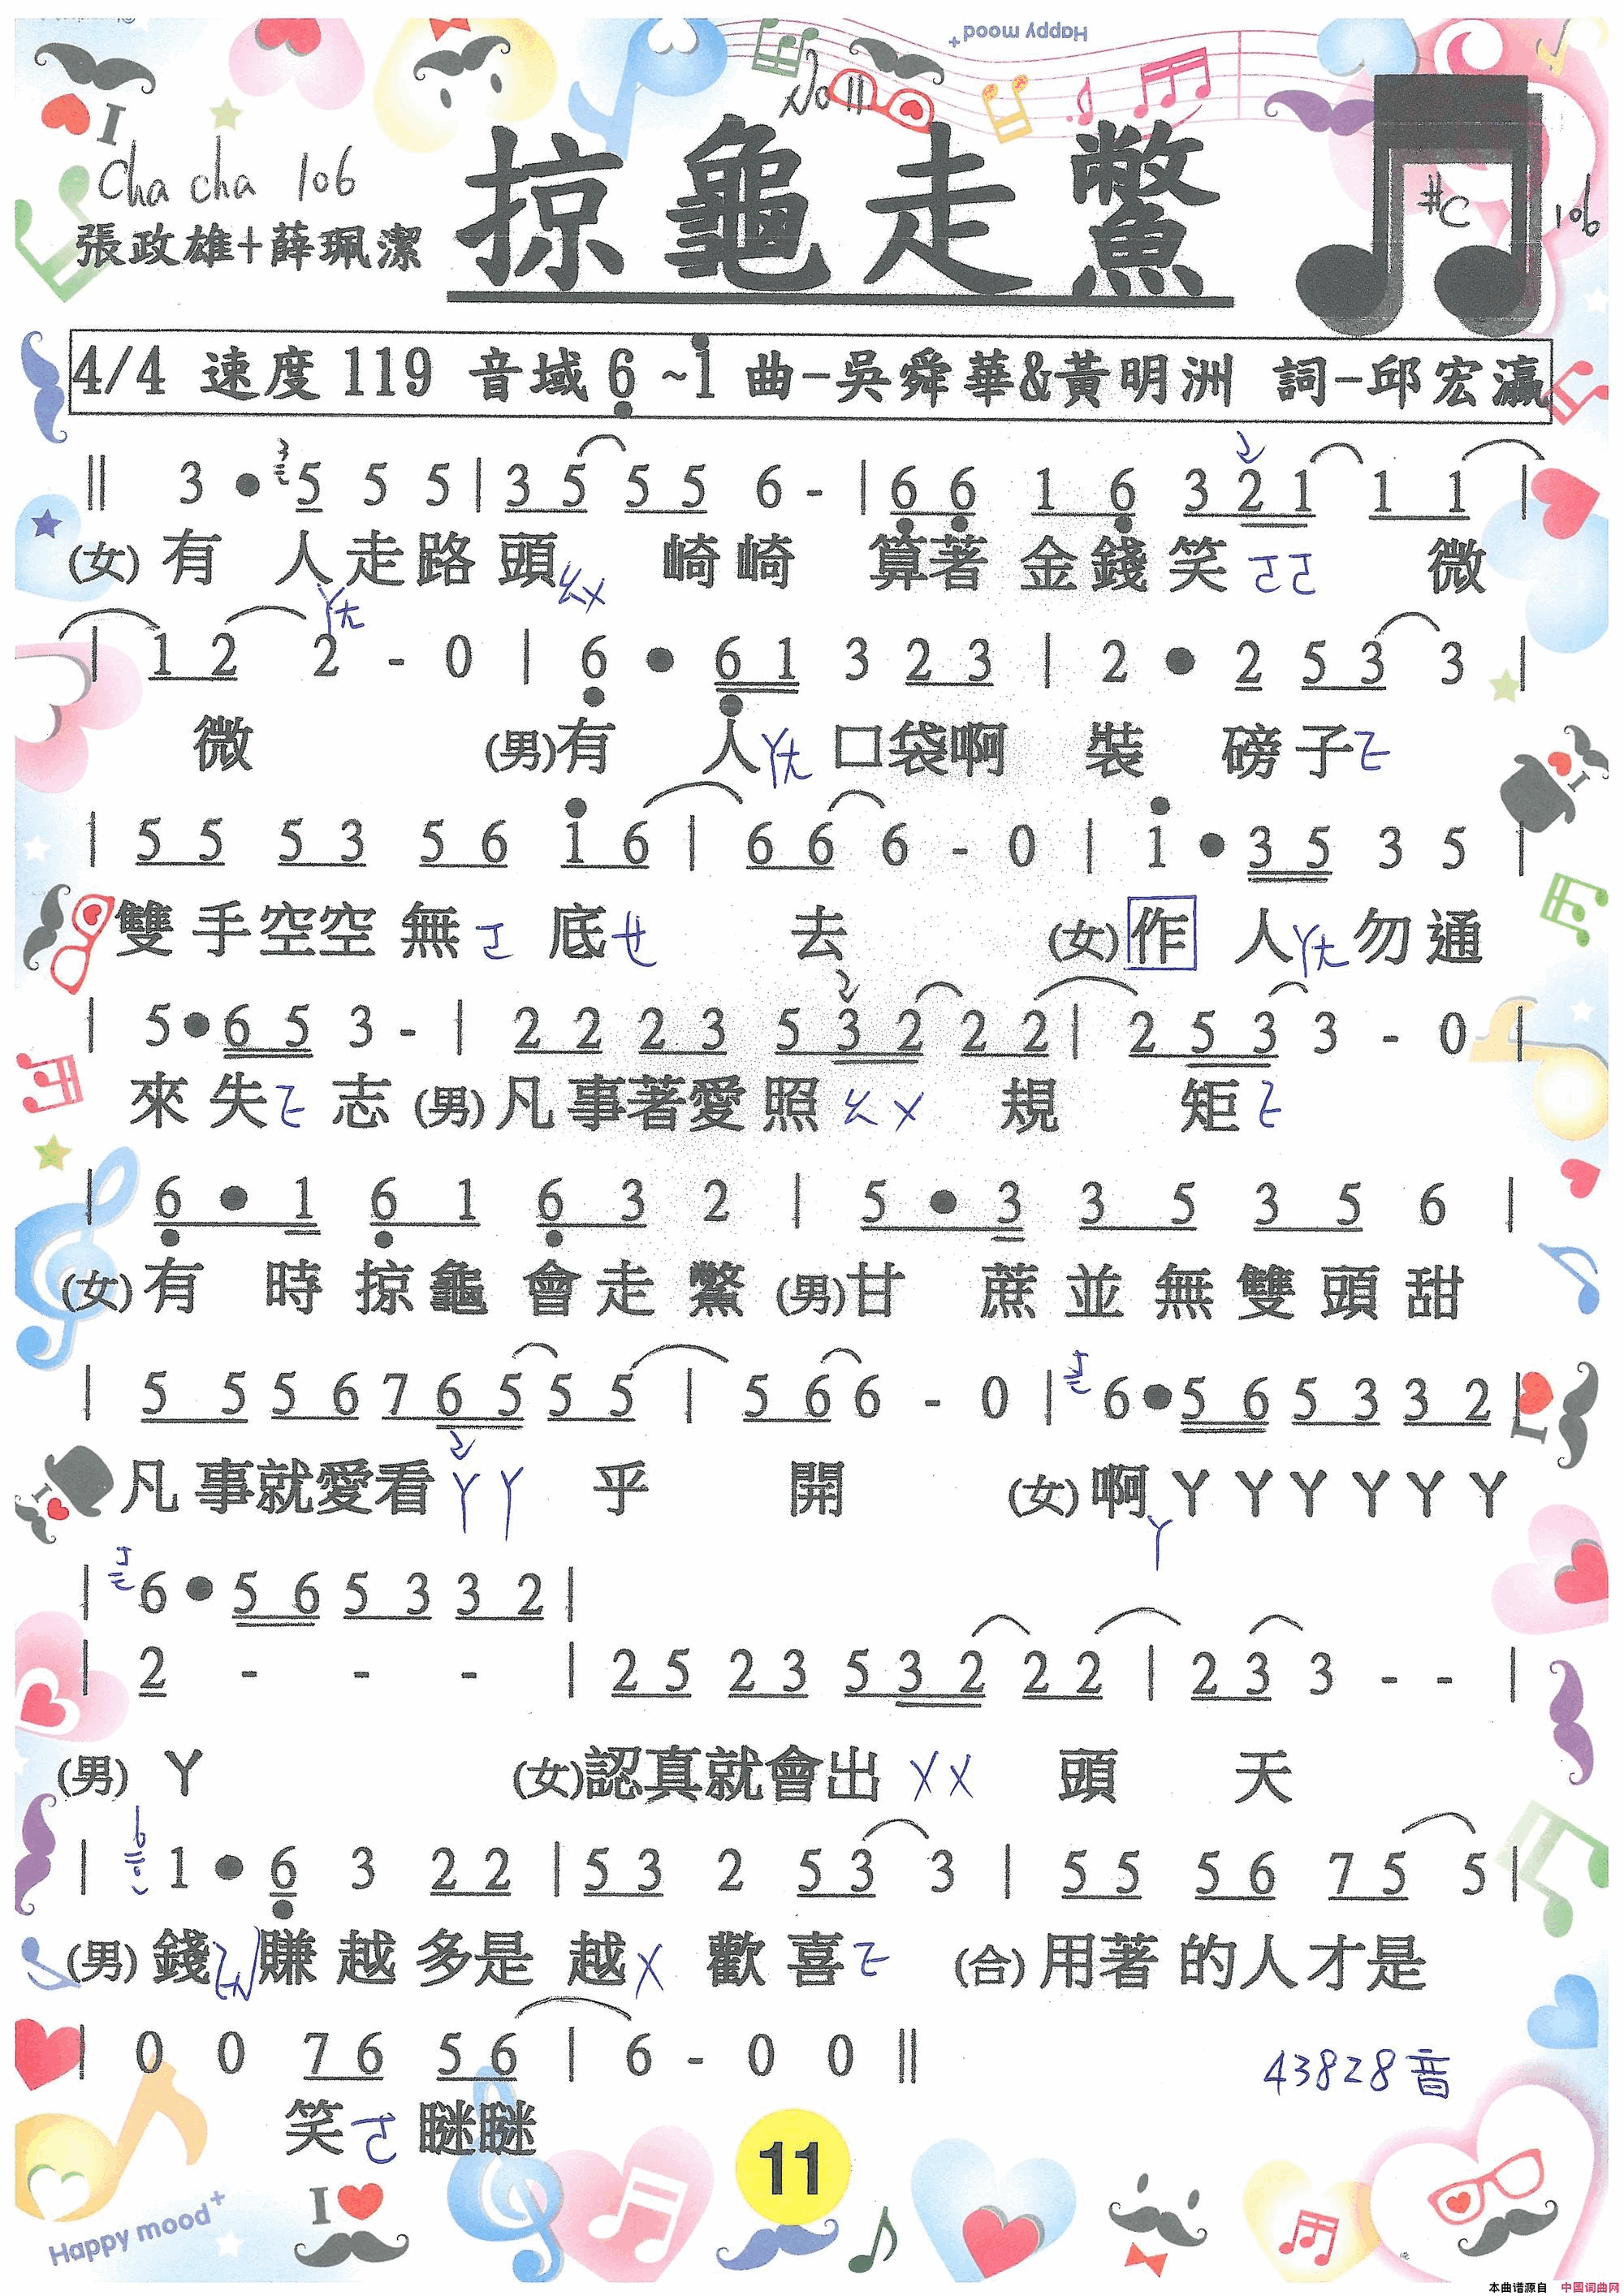 Happy mood+
No 11
掠龜走鱉
I
Cha cha 106
張政雄+薛珮潔
#C 106
4/4 速度 119 音域 6̣ ~i 曲-吳舜華&黃明洲 詞-邱宏瀛
‖ 3 • 5 5 5 | 3 5 5 5 6 - | 6̣ 6̣ 1 6̣ 3 2 1 1 1 |
(女) 有 人走路 頭ㄠㄨ 崎崎 算著 金錢笑ㄛㄛ 微
ㄚㄤ
| 1 2 2 - 0 | 6̣ • 6̣ 1 3 2 3 | 2 • 2 5 3 3 |
微 (男)有 人ㄚㄤ 口袋啊 裝 磅子ㄜ
| 5 5 5 3 5 6 i 6 | 6 6 6 - 0 | i • 3 5 3 5 |
雙手空空 無ㄛ 底ㄝ 去 (女) 作 人ㄚㄤ 勿通
| 5 • 6 5 3 - | 2 2 2 3 5 3 2 2 2 | 2 5 3 3 - 0 |
來 失ㄜ 志 (男) 凡事著愛 照ㄠㄨ 規 矩ㄜ
| 6̣ • 1 6̣ 1 6̣ 3 2 | 5 • 3 3 5 3 5 6 |
(女) 有 時 掠龜 會走 鱉 (男)甘 蔗 並無雙頭甜
| 5 5 5 6 7 6 5 5 5 | 5 6 6 - 0 | 6 • 5 6 5 3 3 2 |
I
凡事就愛看ㄚㄚ 乎 開 (女) 啊 ㄚㄚㄚㄚㄚㄚ
ㄚ
| 6 • 5 6 5 3 3 2 |
| 2 - - - | 2 5 2 3 5 3 2 2 2 | 2 3 3 - - |
(男) ㄚ (女)認真就會出ㄨㄨ 頭 天
| 1 • 6̣ 3 2 2 | 5 3 2 5 3 3 | 5 5 5 6 7 5 5 |
(男) 錢 賺 越 多是 越ㄨ 歡 喜ㄜ (合) 用著 的人才是
| 0 0 7 6 5 6 | 6 - 0 0 ‖
43828音
笑ㄛ 瞇瞇
11
I
Happy mood+
本曲谱源自 中国词曲网